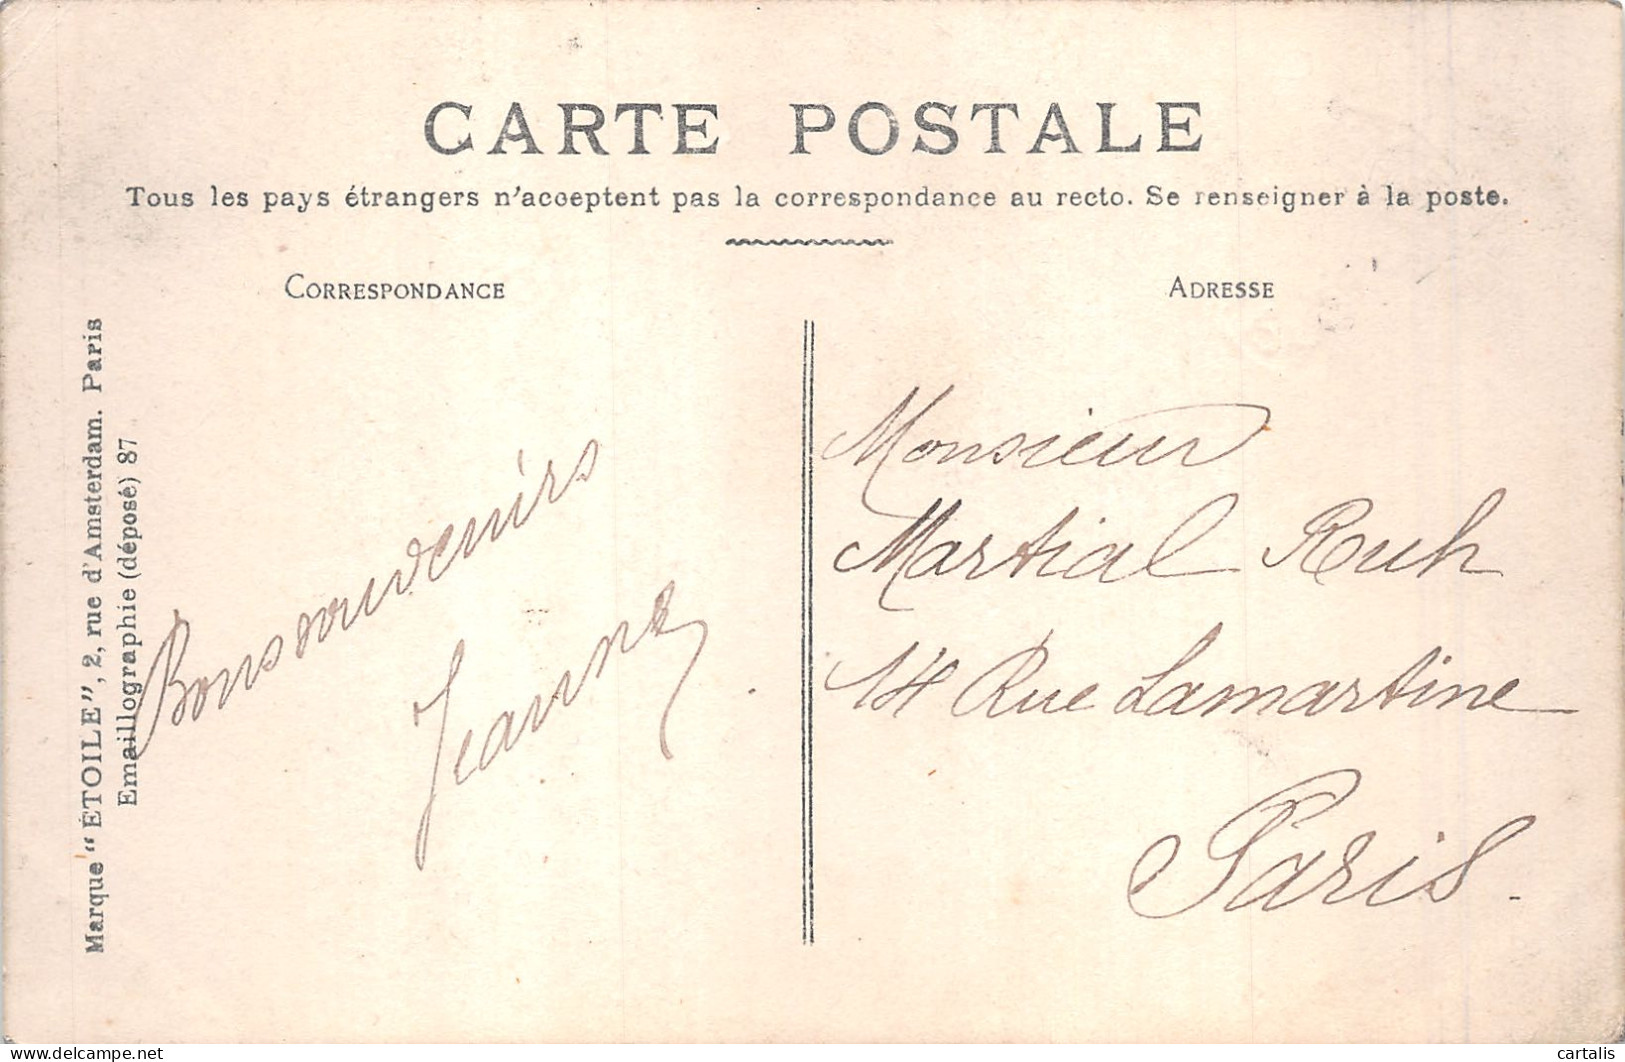 CARTE POSTALE
Tous les pays étrangers n'acceptent pas la correspondance au recto. Se renseigner à la poste.
CORRESPONDANCE
ADRESSE
Marque "ÉTOILE", 2, rue d'Amsterdam. Paris
Emaillographie (déposé) 87
Bons souvenirs
Jeanne
Monsieur
Martial Ruh
14 Rue Lamartine
Paris.
delcampe.net
cartalis